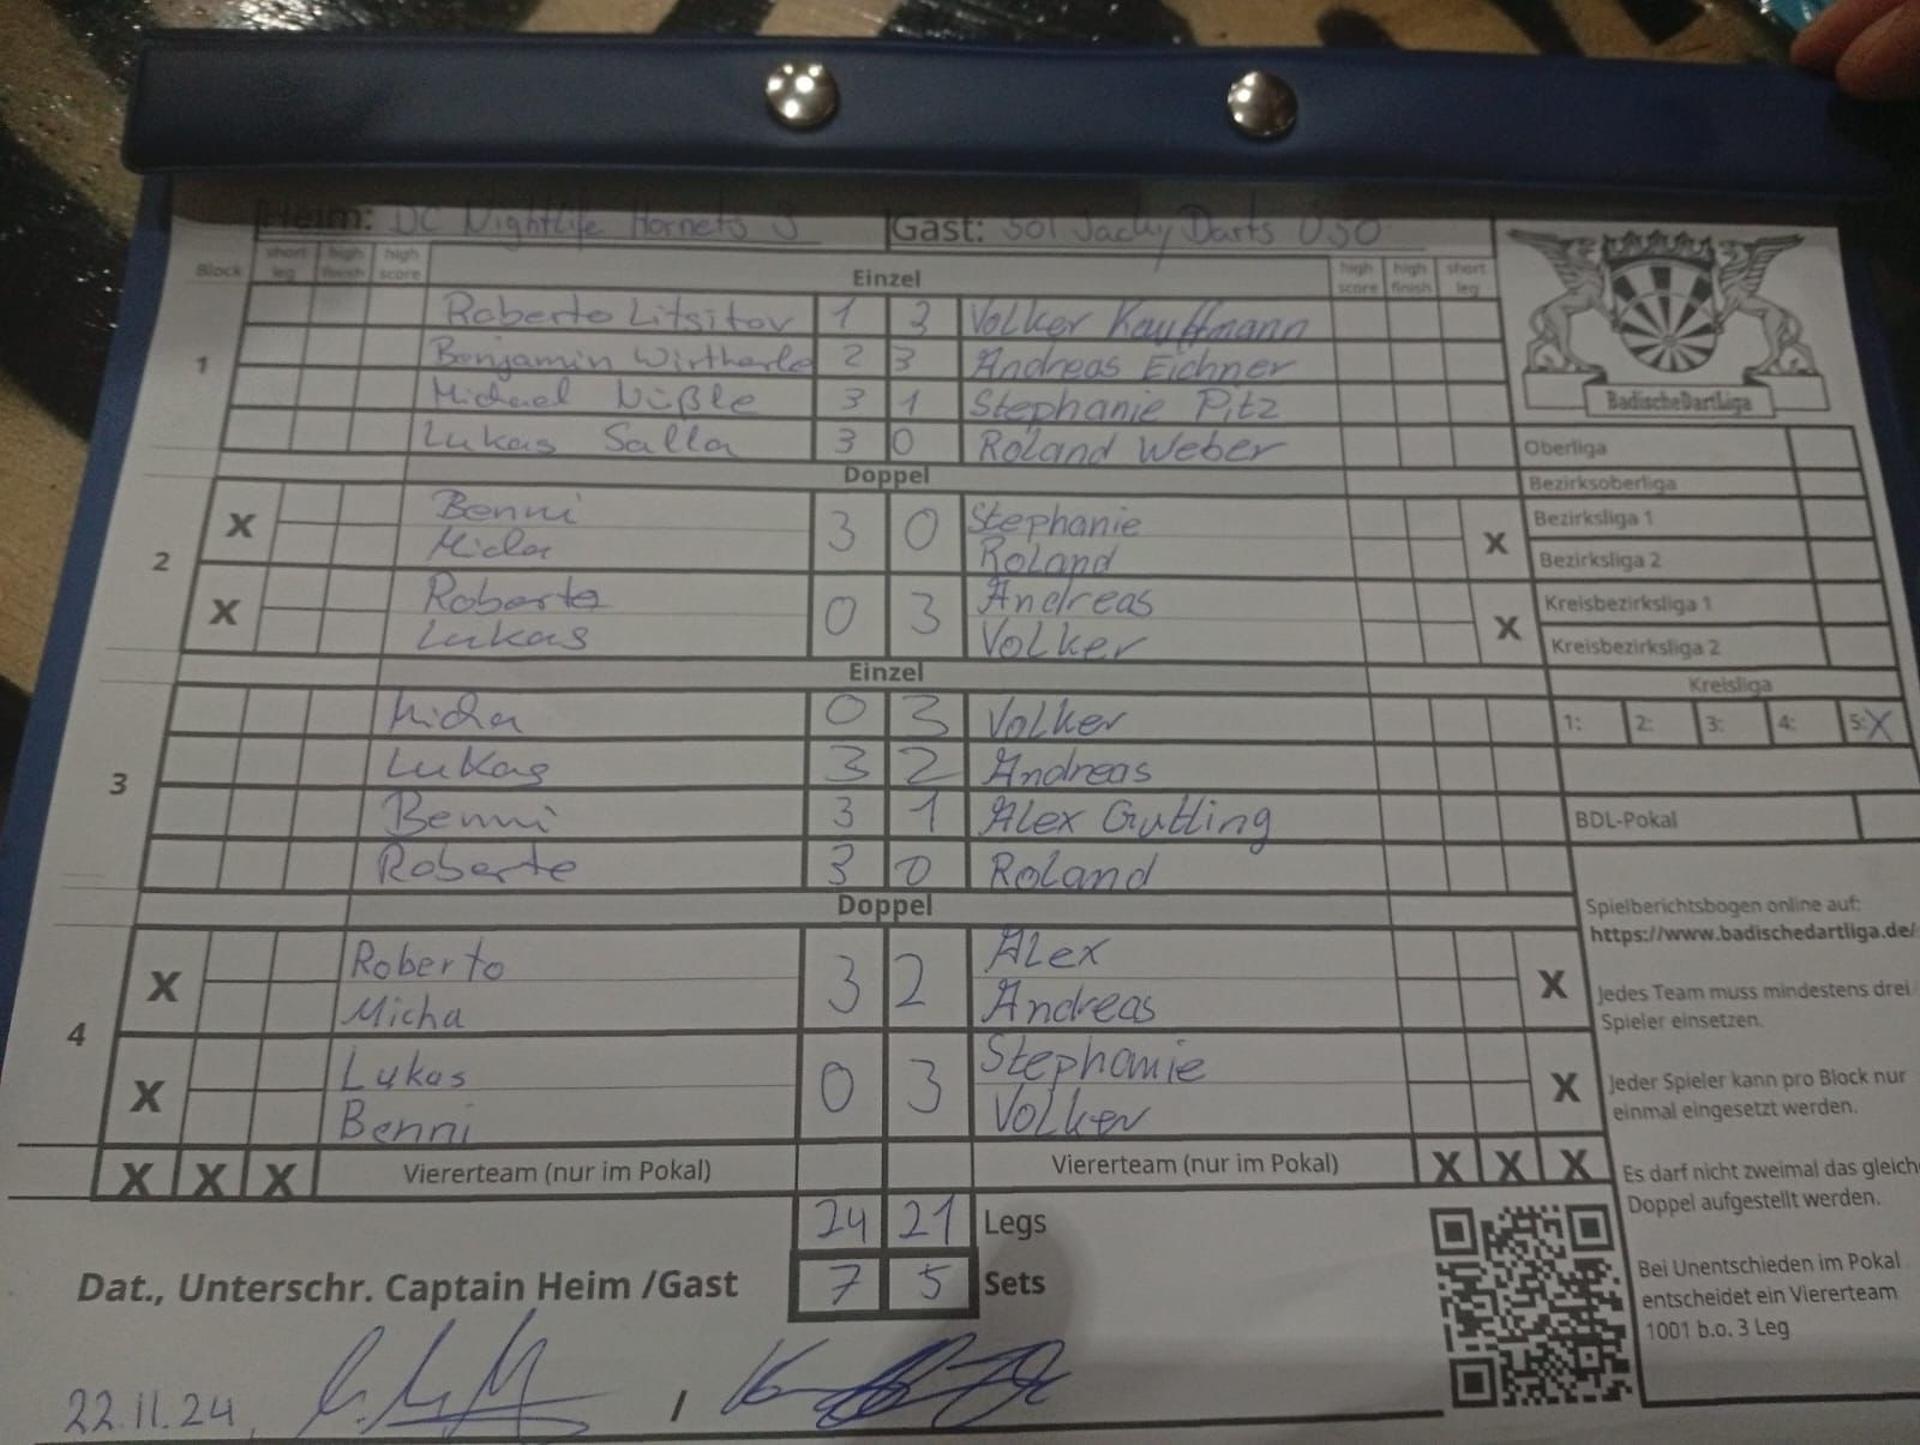 Heim: DC Nightlife Hornets 3 Gast: 501 Jacky Darts Ü50
Block short leg high finish high score Einzel high score high finish short leg
1
Roberto Litsitov 1 3 Volker Kauffmann
Benjamin Wirtherle 2 3 Andreas Eichner
Michael Nüßle 3 1 Stephanie Pitz
Lukas Salla 3 0 Roland Weber
Doppel
2
X Benni 3 0 Stephanie X
Micha Roland
X Roberto 0 3 Andreas X
Lukas Volker
Einzel
3
Micha 0 3 Volker
Lukas 3 2 Andreas
Benni 3 1 Alex Gutling
Roberto 3 0 Roland
Doppel
4
X Roberto 3 2 Alex X
Micha Andreas
X Lukas 0 3 Stephanie X
Benni Volker
X X X Viererteam (nur im Pokal) Viererteam (nur im Pokal) X X X
24 21 Legs
7 5 Sets
Dat., Unterschr. Captain Heim /Gast
22.11.24, /
BadischeDartLiga
Oberliga
Bezirksoberliga
Bezirksliga 1
Bezirksliga 2
Kreisbezirksliga 1
Kreisbezirksliga 2
Kreisliga
1: 2: 3: 4: 5: X
BDL-Pokal
Spielberichtsbogen online auf:
https://www.badischedartliga.de/
Jedes Team muss mindestens drei
Spieler einsetzen.
Jeder Spieler kann pro Block nur
einmal eingesetzt werden.
Es darf nicht zweimal das gleich
Doppel aufgestellt werden.
Bei Unentschieden im Pokal
entscheidet ein Viererteam
1001 b.o. 3 Leg